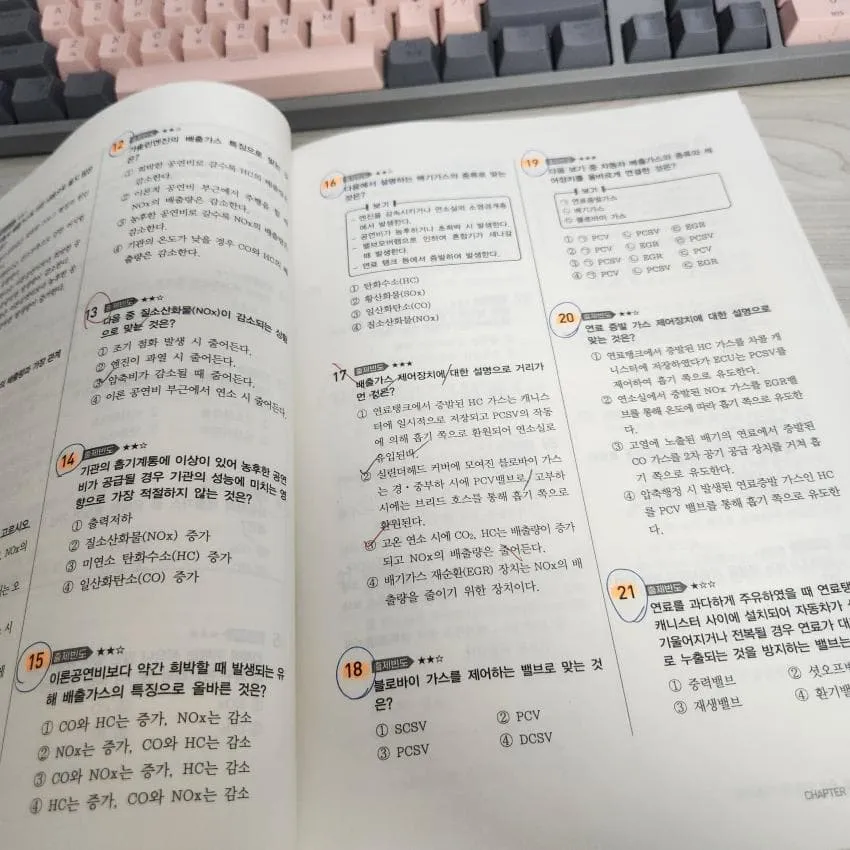 12 출제빈도 ★★☆
가솔린엔진의 배출가스 특징으로 맞는
은?
① 희박한 공연비로 갈수록 HC의 배출량
감소한다.
② 이론적 공연비 부근에서 주행을 할
NOx의 배출량은 감소한다.
③ 농후한 공연비로 갈수록 NOx의 배출량
감소한다.
④ 기관의 온도가 낮을 경우 CO와 HC의
출량은 감소한다.
13 출제빈도 ★★☆
다음 중 질소산화물(NOx)이 감소되는 상황
으로 맞는 것은?
① 조기 점화 발생 시 줄어든다.
② 엔진이 과열 시 줄어든다.
③ 압축비가 감소될 때 줄어든다.
④ 이론 공연비 부근에서 연소 시 줄어든다.
14 출제빈도 ★★☆
기관의 흡기계통에 이상이 있어 농후한 공연
비가 공급될 경우 기관의 성능에 미치는 영
향으로 가장 적절하지 않는 것은?
① 출력저하
② 질소산화물(NOx) 증가
③ 미연소 탄화수소(HC) 증가
④ 일산화탄소(CO) 증가
15 출제빈도 ★★☆
이론공연비보다 약간 희박할 때 발생되는 유
해 배출가스의 특징으로 올바른 것은?
① CO와 HC는 증가, NOx는 감소
② NOx는 증가, CO와 HC는 감소
③ CO와 NOx는 증가, HC는 감소
④ HC는 증가, CO와 NOx는 감소
16 출제빈도 ★★☆
다음에서 설명하는 배기가스의 종류로 맞는
것은?
보기
- 엔진을 감속시키거나 연소실의 소염경계층
에서 발생한다.
- 공연비가 농후하거나 초희박 시 발생한다.
- 밸브오버랩으로 인하여 혼합기가 세나갈
때 발생한다.
- 연료 탱크 등에서 증발하여 발생한다.
① 탄화수소(HC)
② 황산화물(SOx)
③ 일산화탄소(CO)
④ 질소산화물(NOx)
17 출제빈도 ★★★
배출가스 제어장치에 대한 설명으로 거리가
먼 것은?
① 연료탱크에서 증발된 HC 가스는 캐니스
터에 일시적으로 저장되고 PCSV의 작동
에 의해 흡기 쪽으로 환원되어 연소실로
유입된다.
② 실린더헤드 커버에 모여진 블로바이 가스
는 경·중부하 시에 PCV밸브로, 고부하
시에는 브리드 호스를 통해 흡기 쪽으로
환원된다.
③ 고온 연소 시에 CO₂, HC는 배출량이 증가
되고 NOx의 배출량은 줄어든다.
④ 배기가스 재순환(EGR) 장치는 NOx의 배
출량을 줄이기 위한 장치이다.
18 출제빈도 ★★☆
블로바이 가스를 제어하는 밸브로 맞는 것
은?
① SCSV ② PCV
③ PCSV ④ DCSV
19 출제빈도 ★★★
다음 보기 중 자동차 배출가스의 종류와 제
어장치를 올바르게 연결한 것은?
보기
㉠ 연료증발가스
㉡ 배기가스
㉢ 블로바이 가스
① ㉠ PCV ㉡ PCSV ㉢ EGR
② ㉠ PCV ㉡ EGR ㉢ PCSV
③ ㉠ PCSV ㉡ EGR ㉢ PCV
④ ㉠ PCV ㉡ PCSV ㉢ EGR
20 출제빈도 ★★☆
연료 증발 가스 제어장치에 대한 설명으로
맞는 것은?
① 연료탱크에서 증발된 HC 가스를 차콜 캐
니스터에 저장하였다가 ECU는 PCSV를
제어하여 흡기 쪽으로 유도한다.
② 연소실에서 발생된 NOx 가스를 EGR밸
브를 통해 온도에 따라 흡기 쪽으로 유도한
다.
③ 고열에 노출된 배기의 연료에서 증발된
CO 가스를 2차 공기 공급 장치를 거쳐 흡
기 쪽으로 유도한다.
④ 압축행정 시 발생된 연료증발 가스인 HC
를 PCV 밸브를 통해 흡기 쪽으로 유도한
다.
21 출제빈도 ★☆☆
연료를 과다하게 주유하였을 때 연료탱
캐니스터 사이에 설치되어 자동차가
기울어지거나 전복될 경우 연료가 대
로 누출되는 것을 방지하는 밸브는
① 중력밸브 ② 셧오프
③ 재생밸브 ④ 환기밸
CHAPTER